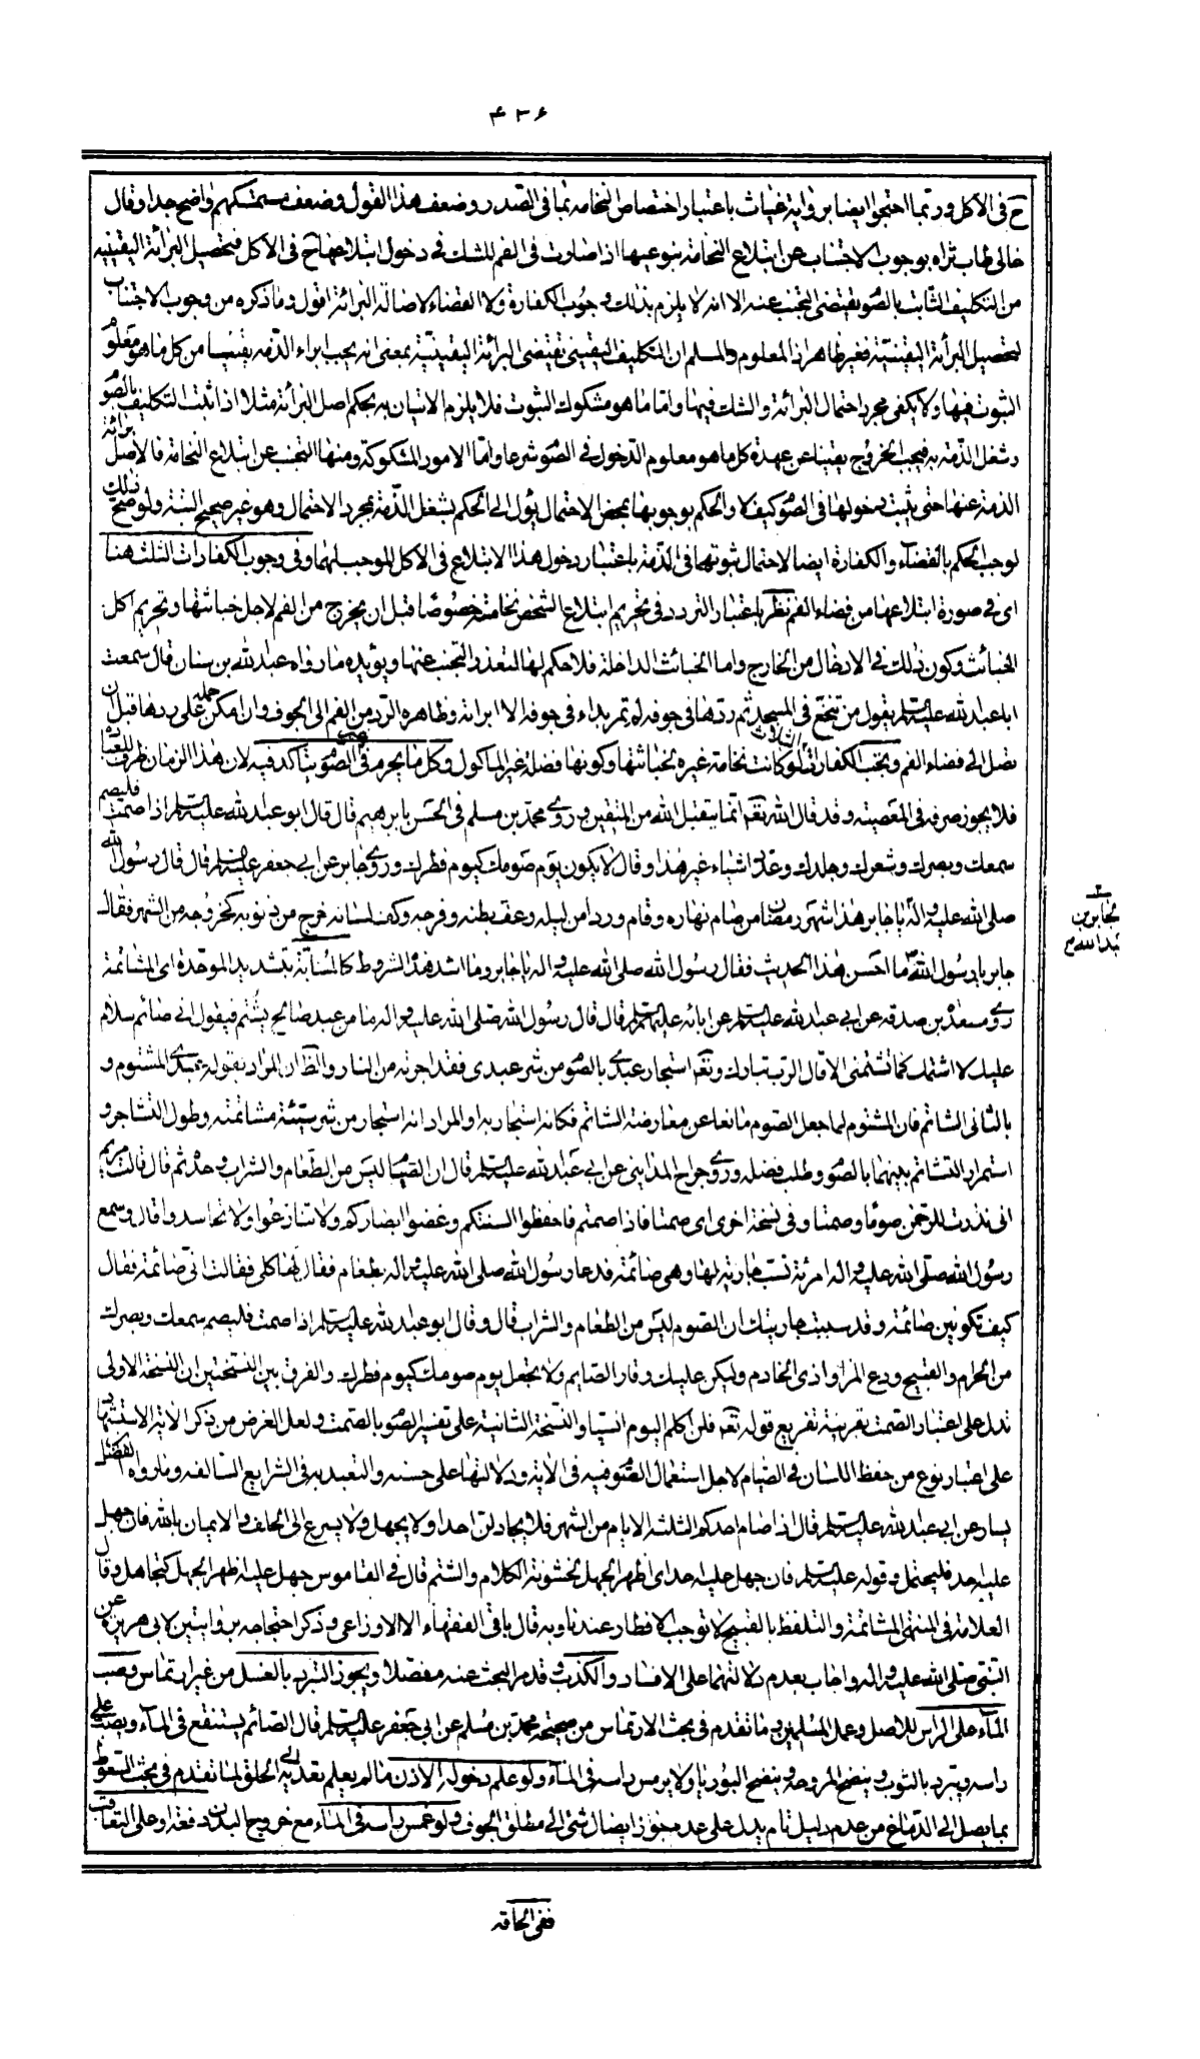 ۴۳۶
ح فى الاكل و ربما احتجوا ايضا برواية غياث باعتبار اختصاص النخامة بما فى الصدر و ضعف هذا القول و ضعف مستمسكهم واضح جدا و قال
خالى طاب ثراه بوجوب الاجتناب عن ابتلاع النخامة بنوعيها اذا صارت فى الفم للشك فى دخول ابتلاعها ح فى الاكل فتحصيل البرائة اليقينيه
من التكليف الثابت بالصو يقتضى التجنب عنه الا انه لا يلزم بذلك وجوب الكفارة ولا القضاء لاصالة البرائة اقول و ما ذكره من وجوب الاجتناب
لتحصيل البرأة اليقينيّة فغير ظاهر اذ المعلوم و المسلم ان التكليف اليقينى يقتضى البرائة اليقينيّة بمعنى انه يجب ابراء الذمة يقينا من كل ما هو معلوم
الثبوت فيها ولا يكفى مجرد احتمال البرائة و الشك فيها و اما ما هو مشكوك الثبوت فلا يلزم الاتيان به بحكم اصل البرائة مثلا اذا ثبت التكليف بالصو
و شغل الذمة به فيجب الخروج يقينا عن عهدة كل ما هو معلوم الدخول فى الصو شرعا و امّا الامور المشكوكة و منها التجنب عن ابتلاع النخامة فالاصل برائة
الذمة عنها حتى يثبت دخولها فى الصو كيف لا و الحكم بوجوبها بمحض الاحتمال يؤل الى الحكم بشغل الذّمة بمجرد الاحتمال و هو غير صحيح البتة ولو صح ذلك
لوجب الحكم بالقضاء و الكفارة ايضا لاحتمال ثبوتهما فى الذّمة باعتبار دخول هذا الابتلاع فى الاكل الموجب لهما و فى وجوب الكفارات الثلث هنا
اى فى صورة ابتلاعها من فضاء الفم نظر باعتبار التردد فى تحريم ابتلاع الشخص نخامته خصوصا قبل ان يخرج من الفم لاجل خباثتها و تحريم اكل
الخبائث و كون ذلك فى الادخال من الخارج و اما الخبائث الداخلة فلا حكم لها لتعذر التجنب عنها و يؤيده ما رواه عبد الله بن سنان قال سمعت
ابا عبد الله عليه السلم يقول من تنخع فى المسجد ثم ردها فى جوفه لم تمر بداء فى جوفه الا ابراته و ظاهره الرد من الفم الى الجوف و ان امكن حمله على ردها قبل ان
تصل الى فضاء الفم و تجب الكفارات الثلث لو كانت نخامة غيره لخباثتها و كونها فضلة غير الماكول و كل ما يحرم فى غير الصو يتاكد فيه لان هذا الزمان ظرف للعبادة
فلا يجوز صرفه فى المعصية و قد قال الله تعم انما يتقبل الله من المتقين و روى محمد بن مسلم فى الحسن بابرهيم قال قال ابو عبد الله عليه السلم اذا صمت فليصم
سمعك و بصرك و شعرك و جلدك و عدد اشياء غير هذا و قال لا يكون يوم صومك كيوم فطرك و روى جابر عن ابى جعفر عليه السلم قال قال رسول الله
صلى الله عليه و اله يا جابر هذا شهر رمضان من صام نهاره و قام وردا من ليله و عف بطنه و فرجه و كف لسانه خرج من ذنوبه كخروجه من الشهر فقال
جابر يا رسول الله ما احسن هذا الحديث فقال رسول الله صلى الله عليه و اله يا جابر و ما اشد هذه الشروط كالمسابّة بتشديد الموحّدة اى المشاتمة
روى مسعدة بن صدقه عن ابى عبد الله عليه السلم عن ابائه عليهم السلم قال قال رسول الله صلى الله عليه و اله ما من عبد صالح يشتم فيقول انى صائم سلام
عليك لا اشتمك كما تشتمنى الا قال الرب تبارك و تعم استجار عبدى بالصو من شر عبدى فقد اجرته من النار و الظاهر ان المراد بقوله عبدى المشتوم و
بالثانى الشاتم فان المشتوم لما جعل الصوم مانعا عن معارضة الشاتم فكانه استجار به او المراد انه استجار من شر سيّئة مشاتمته و طول التشاجر و
استمرار التشاتم بينهما بالصو و طلب فضله و روى جراح المداينى عن ابى عبد الله عليه السلم قال ان الصيام ليس من الطّعام و الشراب وحده ثم قال قالت مريم
انى نذرت للرحمن صوما و صمتا و فى نسخة اخرى اى صمتا فاذا صمتم فاحفظوا السنتكم و غضوا ابصاركم ولا تنازعوا ولا تحاسدوا قال و سمع
رسول الله صلى الله عليه و اله امرئة تسبّ جارية لها و هى صائمة فدعا رسول الله صلى الله عليه و اله بطعام فقال لها كلى فقالت انى صائمة فقال
كيف تكونين صائمة و قد سببت جاريتك ان الصوم ليس من الطعام و الشراب قال و قال ابو عبد الله عليه السلم اذا صمت فليصم سمعك و بصرك
من الحرام و القبيح و دع المرا و اذى الخادم و ليكن عليك وقار الصايم ولا تجعل يوم صومك كيوم فطرك و الفرق بين النسختين ان النسخة الاولى
تدل على اعتبار الصمت بقرينة تفريع قوله تعم فلن اكلم اليوم انسيا و النسخة الثانية على تفسير الصو بالصمت و لعل الغرض من ذكر الاية الاستشهاد
على اعتبار نوع من حفظ اللسان فى الصيام لاجل استعمال الصو فيه فى الاية و دلالتها على حسنه و التعبد به فى الشرايع السالفه و ما رواه الفضيل
يسار عن ابى عبد الله عليه السلم قال اذا صام احدكم الثلثة الايام من الشهر فلا يجادلن احدا ولا يجهل ولا يسرع الى الحلف و الايمان بالله فان جهل
عليه احد فليحتمل و قوله عليه السلم فان جهل عليه احد اى اظهر الجهل بخشونة الكلام و الشتم قال فى القاموس جهل عليه اظهر الجهل كتجاهل و قال
العلامة فى المنتهى المشاتمة و التلفظ بالقبيح لا توجب الافطار عندنا و به قال باقى الفقهاء الا الاوزاعى و ذكر احتجاجه بروايتين لابى هريرة عن
النبى صلى الله عليه و اله و اجاب بعدم دلالتهما على الافساد و الكذب و قد مر البحث عنه مفصلا و يجوز التبرد بالغسل من غير ارتماس و صب
الماء على الراس للاصل و عمل المسلمين و ما تقدم فى بحث الارتماس من صحيحة محمد بن مسلم عن ابى جعفر عليه السلم قال الصائم يستنقع فى الماء و يصب على
راسه و يتبرد بالثوب و ينضح المروحة و ينضح البوريا ولا يرمس راسه فى الماء ولو علم دخوله الاذن ما لم يعلم تعديه الى الحلق لما تقدم فى بحث السعوط
بما يصل الى الدماغ من عدم دليل تام يدل على عدم جواز ايصال شئ الى مطلق الجوف ولو غمس راسه فى الماء مع خروج البدن دفعة او على التعاقب
ففى الحاقه